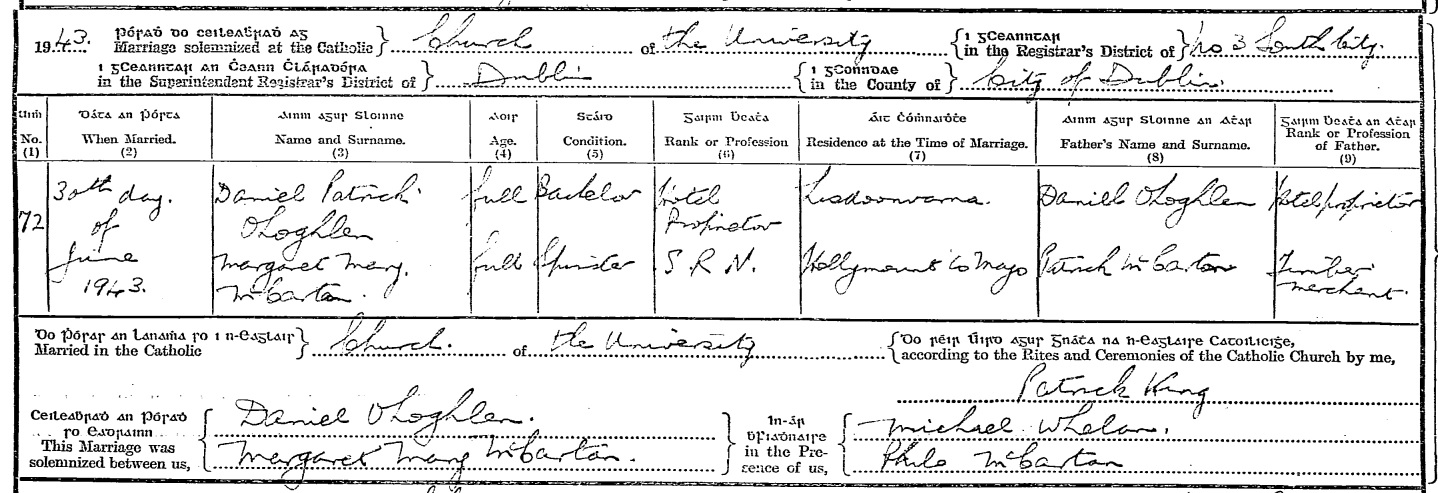 Póraḋ do ceileaḃraḋ ag
1943. Marriage solemnized at the Catholic Church of the University
i gCeanntar
in the Registrar's District of No 3 South City.
i gCeanntar an Ċeann Ċláraḋóra
in the Superintendent Registrar's District of Dublin
i gConndae
in the County of City of Dublin.
Uiṁ No. (1)
Dáta an Pórta When Married. (2)
Ainm agus Sloinne Name and Surname. (3)
Aois Age. (4)
Stáid Condition. (5)
Gairm Ḃeaṫa Rank or Profession (6)
Áit Ċóṁnaiḋṫe Residence at the Time of Marriage. (7)
Ainm agus Sloinne an Aṫar Father's Name and Surname. (8)
Gairm Ḃeaṫa an Aṫar Rank or Profession of Father. (9)
72
30th day. of June 1943.
Daniel Patrick O'Loghlen
full
Bachelor
Hotel Proprietor
Lisdoonvarna.
Daniel O'Loghlen
Hotel proprietor
Margaret Mary. McCartan.
full
Spinster
S. R. N.
Hollymount Co Mayo
Patrick McCartan
Timber merchant.
Do Pósaḋ an Lanaṁa so i n-Eaglais
Married in the Catholic Church. of the University
Do réir Ġnáṫa na h-Eaglaise Catoiliciġe,
according to the Rites and Ceremonies of the Catholic Church by me,
Patrick King
Ceileaḃraḋ an Póraḋ
so eadrainn
This Marriage was
solemnized between us,
Daniel O'Loghlen.
Margaret Mary McCartan.
In-ár
ḃfiaḋnaire
in the Pre-
sence of us,
Michael Whelan.
Philo McCartan